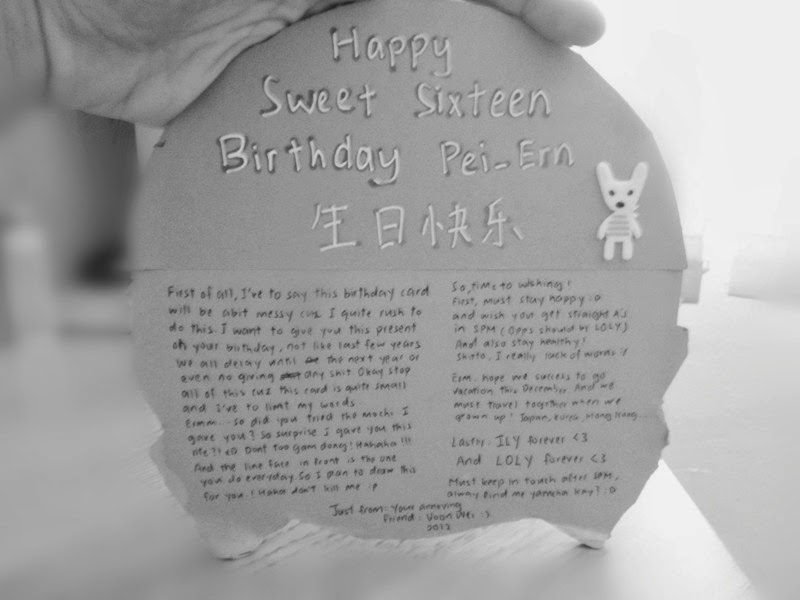 Happy
Sweet Sixteen
Birthday Pei-Ern
生日快乐
First of all, I've to say this birthday card
will be abit messy cuz I quite rush to
do this. I want to give you this present
on your birthday, not like last few years
we all delay until the next year or
even no giving any shit Okay stop
all of this cuz this card is quite small
and I've to limit my words.
Ermm... So did you tried the mochi I
gave you? So surprise I gave you this
me?! xD Dont too gam dong! Hahaha!!!
And the line face in front is the one
you do everyday. So I plan to draw this
for you! Haha don't kill me :p
So, time to wishing!
First, must stay happy :D
and wish you get straight A's
in SPM (Opps should be LOLY)
And also stay healthy!
I really lack of words :/
Erm.. hope we success to go
vacation this December. And we
must travel together when we
grown up! Japan, Korea, Hong Kong...
Lastly, ILY forever <3
And LOLY forever <3
Must keep in touch after SPM,
always find me yamcha kay? :D
Just from: Your annoying
friend: Yoon Wei :)
2012